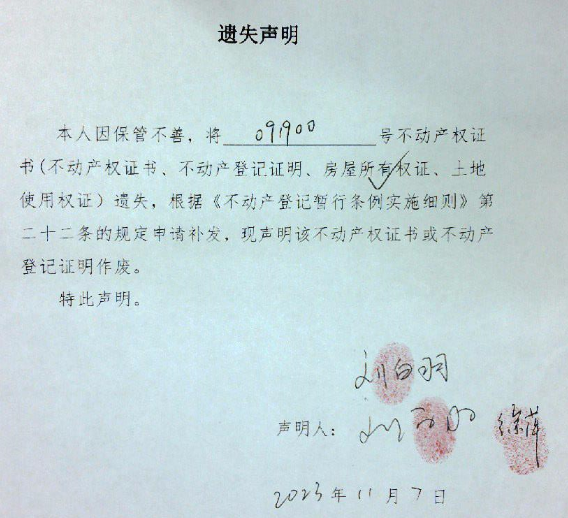 遗失声明
本人因保管不善，将 091900 号不动产权证
书（不动产权证书、不动产登记证明、房屋所有权证、土地
使用权证）遗失，根据《不动产登记暂行条例实施细则》第
二十二条的规定申请补发，现声明该不动产权证书或不动产
登记证明作废。
特此声明。
刘白羽
声明人： 徐萍
2023年11月7日